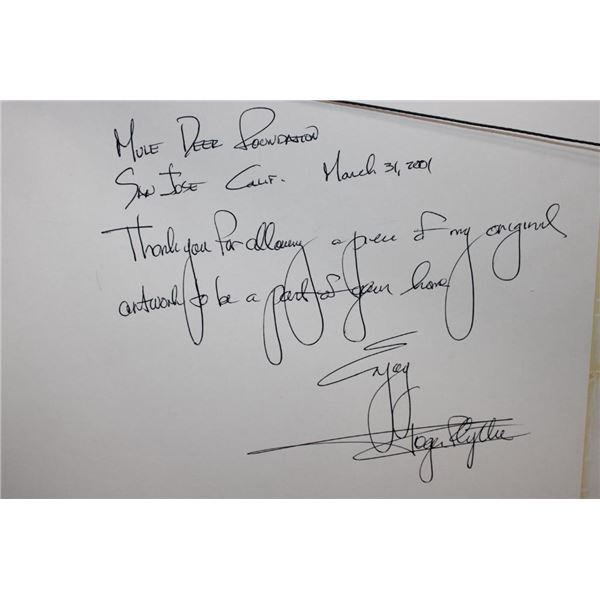 Mule Deer Foundation
San Jose Calif. March 31, 2001
Thank you for allowing a piece of my original
artwork to be a part of your home
Enjoy
Roger